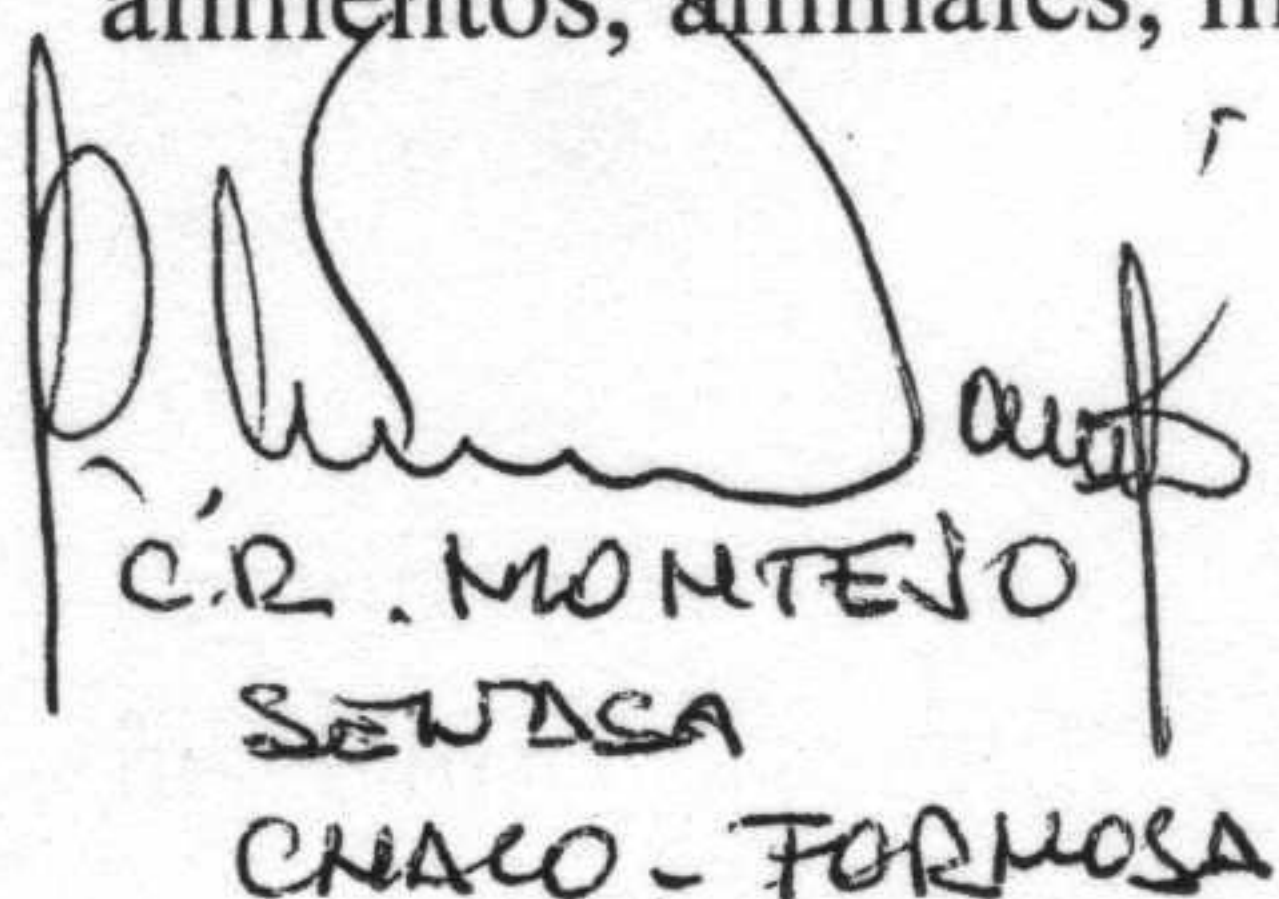 alimentos, animales,
C.R. MONTEJO
SENASA
CHACO - FORMOSA